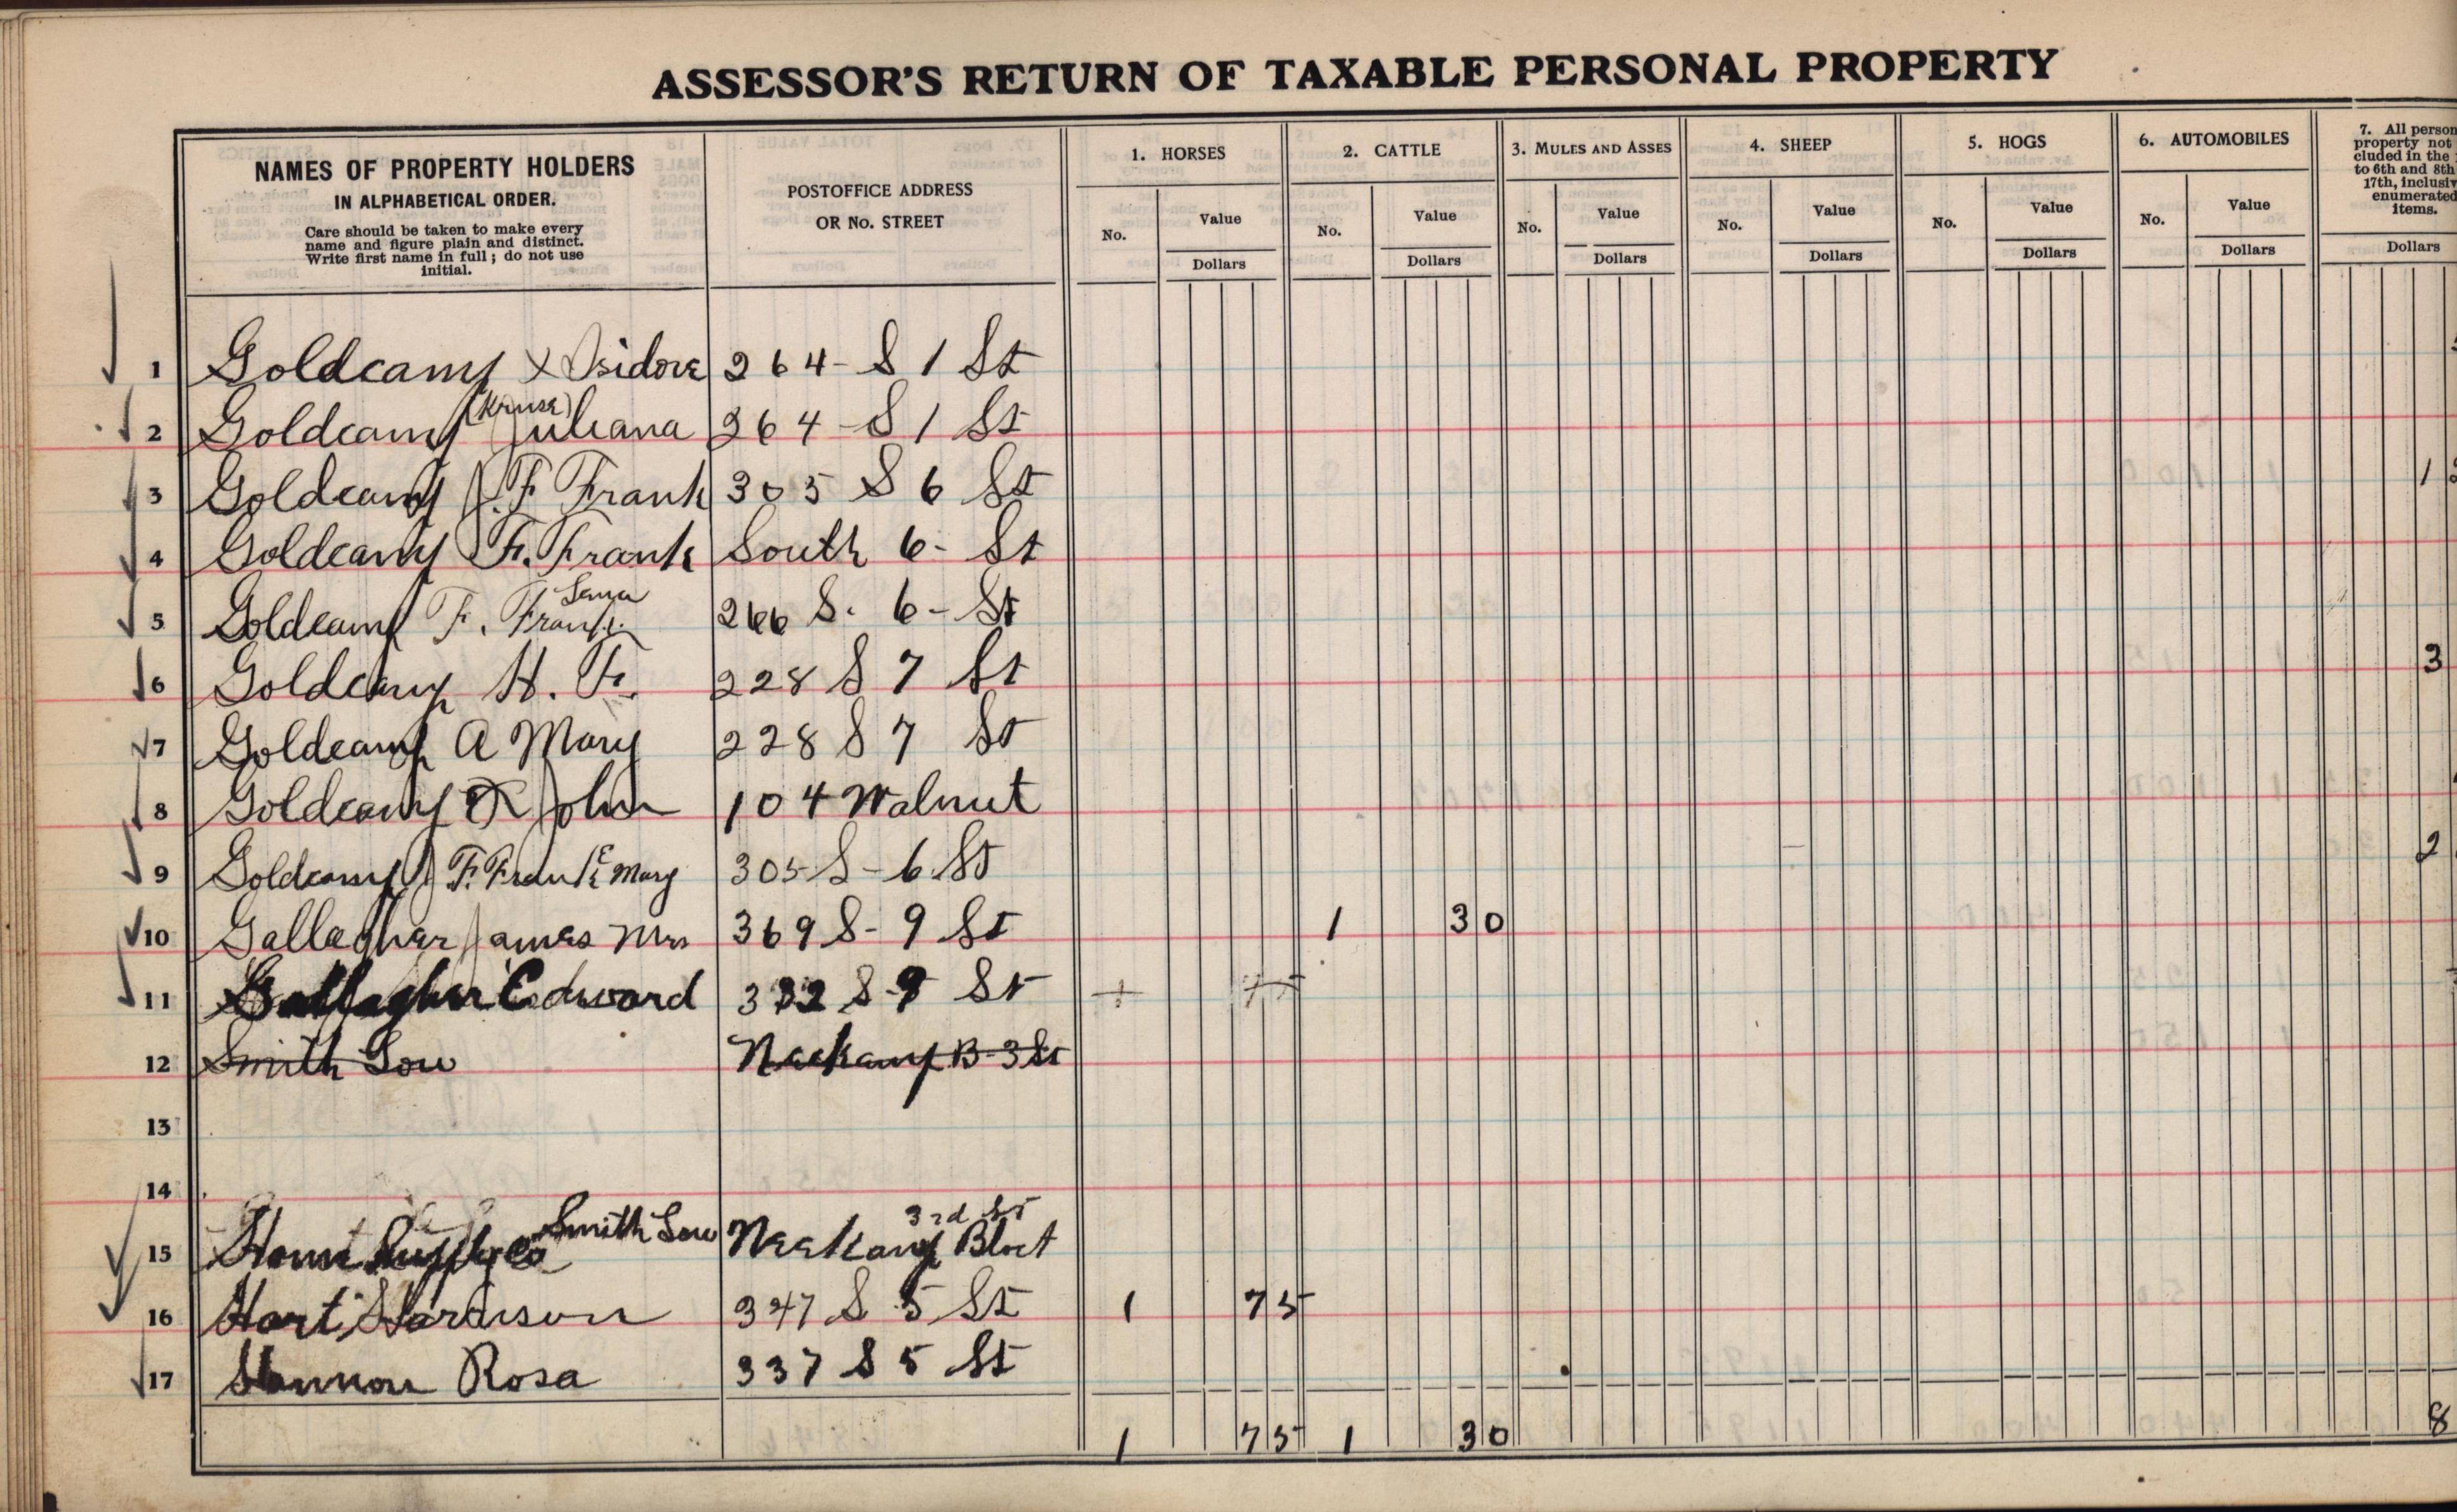 ASSESSOR'S RETURN OF TAXABLE PERSONAL PROPERTY
NAMES OF PROPERTY HOLDERS
IN ALPHABETICAL ORDER.
Care should be taken to make every
name and figure plain and distinct.
Write first name in full; do not use
initial.
POSTOFFICE ADDRESS
OR No. STREET
1. HORSES
No.
Value
Dollars
2. CATTLE
No.
Value
Dollars
3. MULES AND ASSES
No.
Value
Dollars
4. SHEEP
No.
Value
Dollars
5. HOGS
No.
Value
Dollars
6. AUTOMOBILES
No.
Value
Dollars
7. All person
property not
cluded in the
to 6th and 8th
17th, inclusiv
enumerated
items.
Dollars
1 Goldcamp X Isidore 264 - S 1 St
2 Goldcamp (Kruse) Juliana 264 - S 1 St
3 Goldcamp J. F Frank 305 S 6 St 1
4 Goldcamp F. Frank South 6 - St
5 Goldcamp F. Frank 266 S. 6 - St
6 Goldcamp H. F. 228 S 7 St 3
7 Goldcamp A Mary 228 S 7 St
8 Goldcamp John 104 Walnut
9 Goldcamp J F. Frank E Mary 305 S - 6 St 2
10 Gallagher James Mrs 369 S - 9 St 1 30
11 Gallagher Edward S 9 St
12 Smith Lou Neekamp B - 3 St
13
14
15 Home Supply Co Smith Lou Neekamp 3rd St
16 Hart Harrison 347 S 5 St 1 75
17 Hannon Rosa 337 S 5 St
1 75 1 30 8